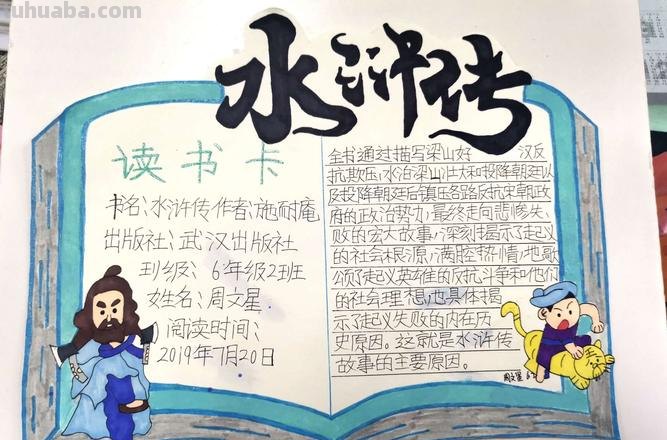 uhuaba.com
水浒传
读书卡
书名:水浒传 作者:施耐庵
出版社:武汉出版社
班级:6年级2班
姓名:周文星
阅读时间:
2019年7月20日
全书通过描写梁山好 汉反
抗欺压,水泊梁山壮大和投降朝廷以
及投降朝廷后镇压各路反抗宋朝政
府的政治势力,最终走向悲惨失
败的宏大故事,深刻揭示了起义
的社会根源,满腔热情地歌
颂了起义英雄的反抗斗争和他们
的社会理想,也具体揭
示了起义失败的内在历
史原因。这就是水浒传
故事的主要原因。
周文星